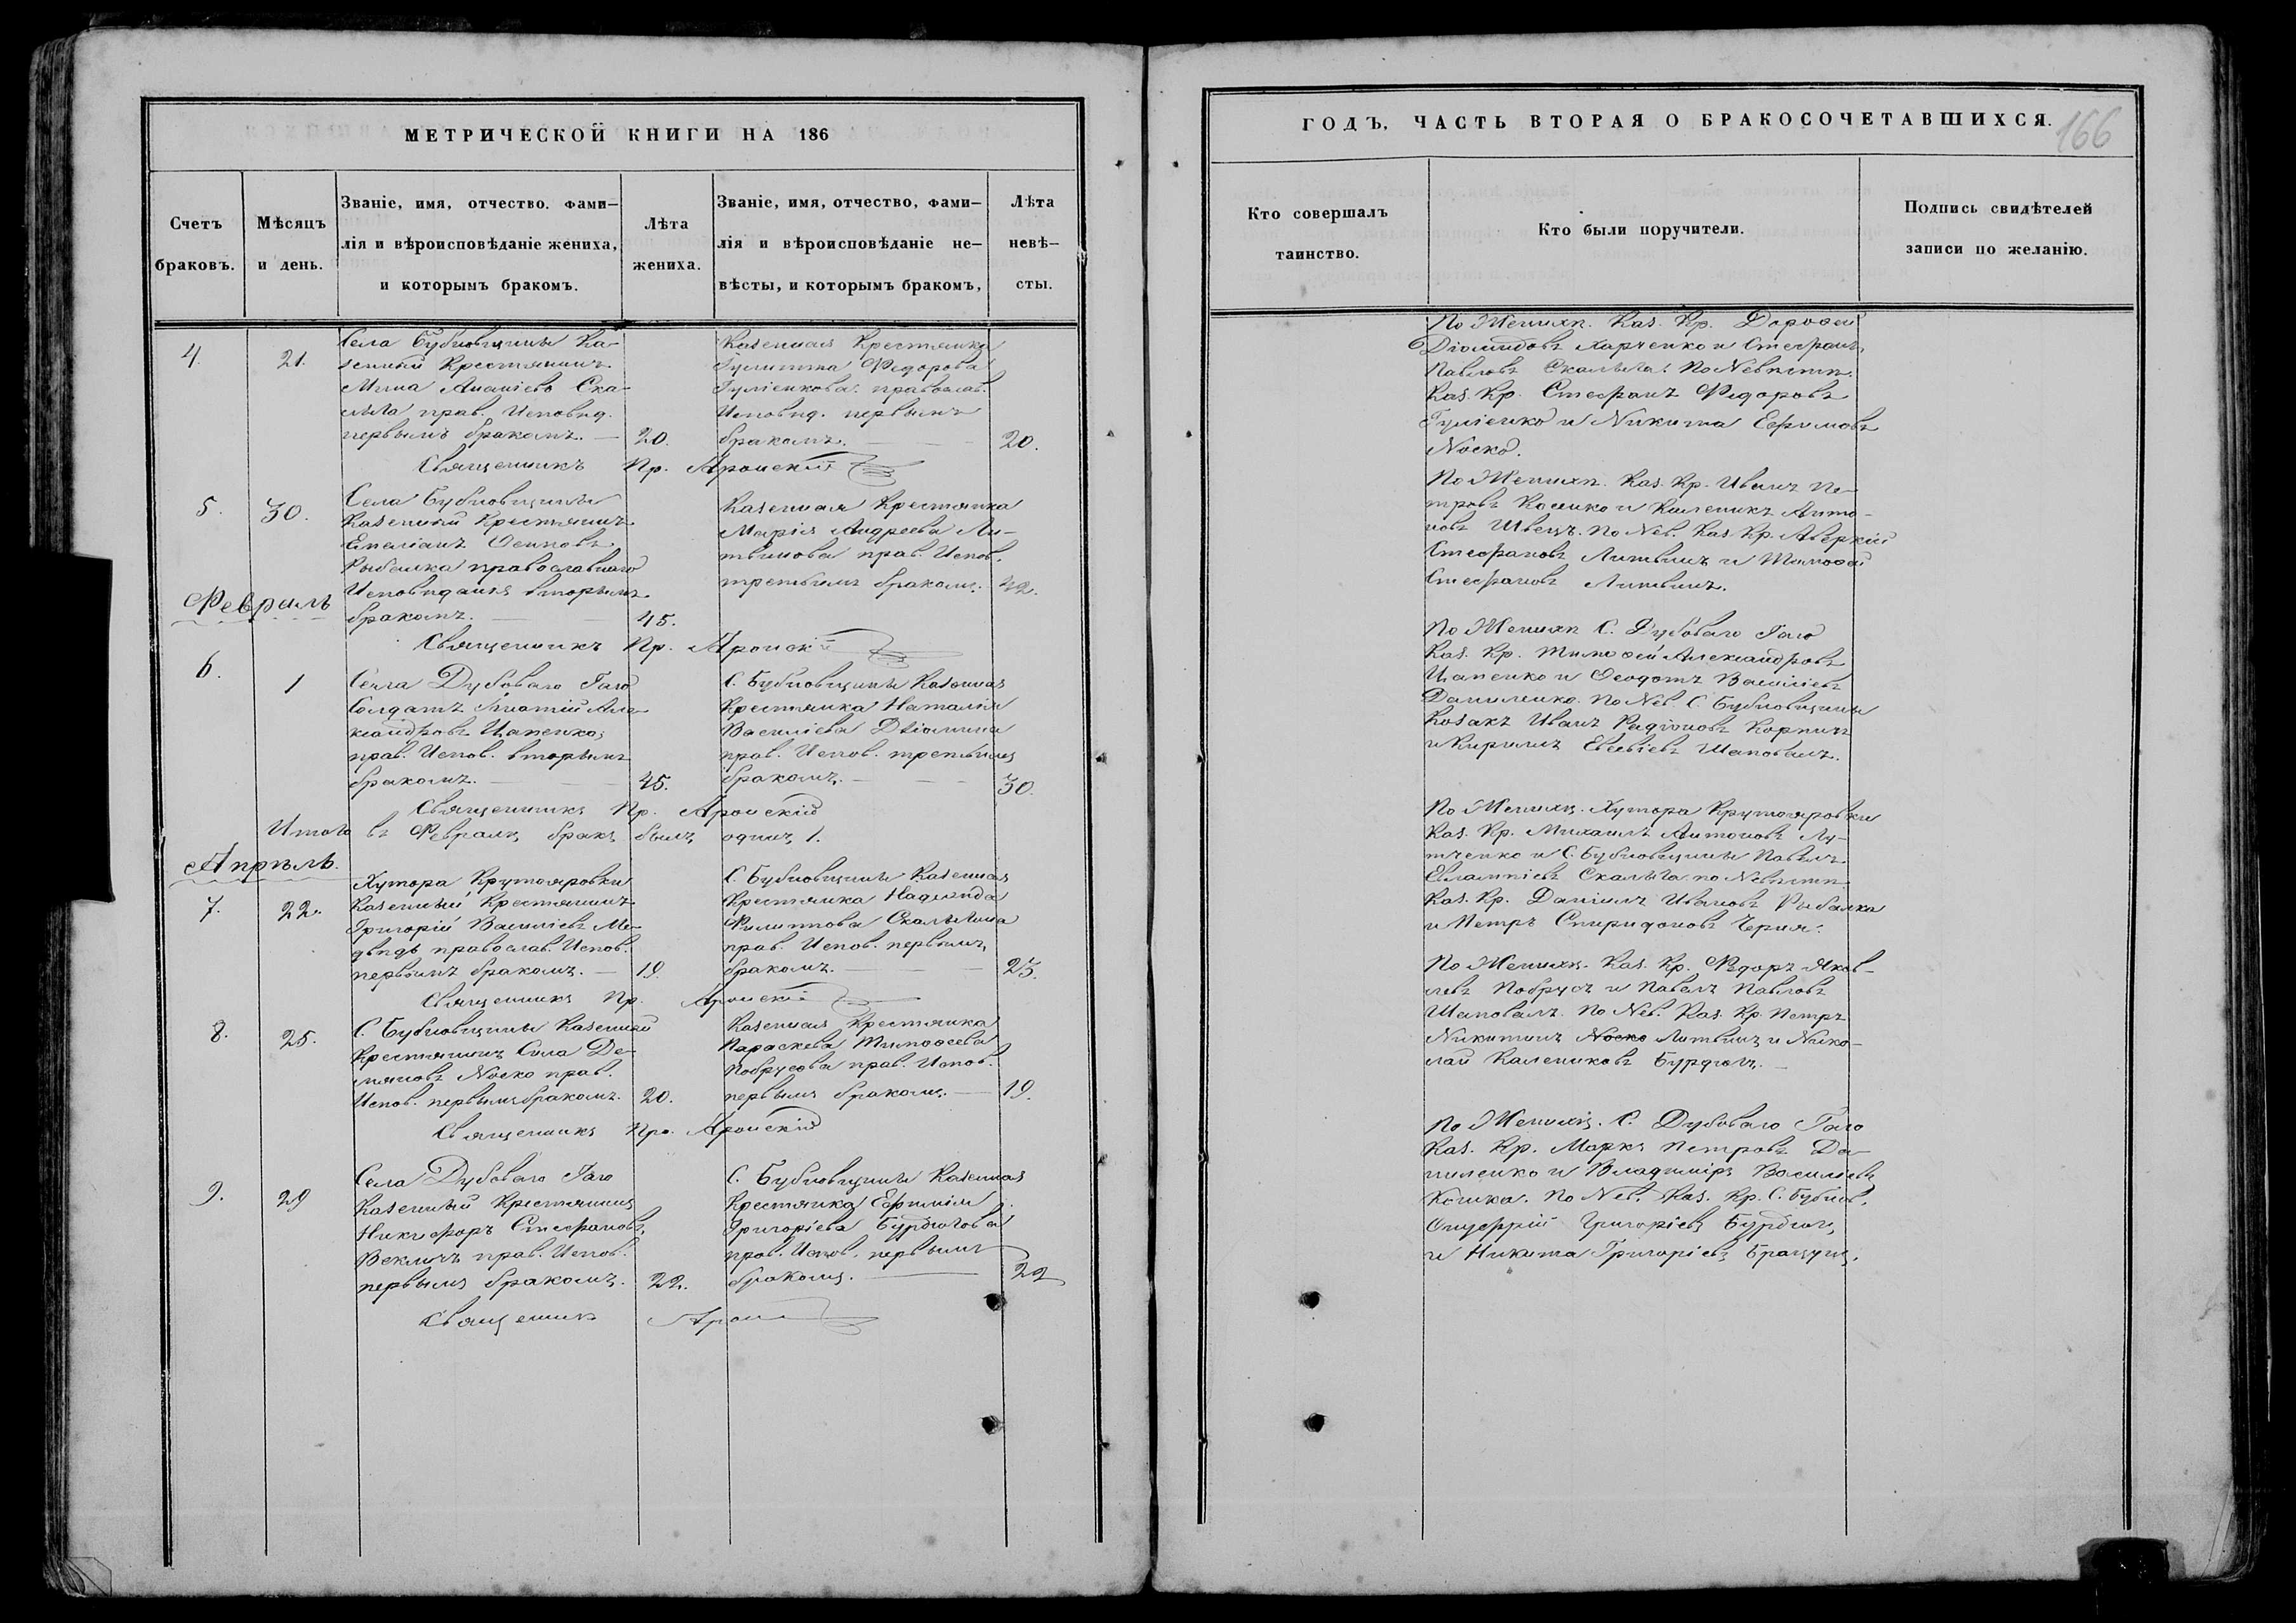 МЕТРИЧЕСКОЙ КНИГИ НА 186
Счетъ браковъ.
Мѣсяцъ и день.
Званіе, имя, отчество. фами-
лія и вѣроисповѣданіе жениха,
и которымъ бракомъ.
Лѣта
жениха.
Званіе, имя, отчество, фами-
лія и вѣроисповѣданіе не-
вѣсты, и которымъ бракомъ,
Лѣта
невѣ-
сты.
4.
21.
Села Бубновщины Ка-
зенный Крестьянинъ
Мина Ананіевъ Ска-
прав. Исповѣд.
первымъ бракомъ.
20.
Казенная Крестьянка
Іулитта Федорова
Гуліенкова православ.
Исповѣд. первымъ
бракомъ.
20.
Священникъ Пр. Аронскій
5.
30.
Села Бубновщины
Казенный Крестьянинъ
Емеліанъ Осиповъ
Рыбалка православнаго
Исповѣданія вторымъ
бракомъ.
45.
Казенная Крестьянка
Марія Андреева Ли-
твинова прав. Испов.
третьимъ бракомъ.
42.
Священникъ Пр. Аронскій
Февраль
6.
1
Села Дубоваго Гаю
Солдатъ Але-
ксандровъ Цапенко,
прав. Испов. вторымъ
бракомъ.
45.
С. Бубновщины Казенная
Крестьянка Наталія
Василіева
прав. Испов. третьимъ
бракомъ.
30.
Священникъ Пр. Аронскій
Итого въ Февралѣ бракъ былъ одинъ 1.
Апрѣль.
7.
22.
Хутора Крутояровки
Казенный Крестьянинъ
Григорій Василіевъ Ме-
двѣдь православ. Испов.
первымъ бракомъ.
19.
С. Бубновщины Казенная
Крестьянка Надежда
Филиппова
прав. Испов. первымъ
бракомъ.
23.
Священникъ Пр. Аронскій
8.
25.
С. Бубновщины Казенный
Крестьянинъ Сила Де-
мяновъ Носко прав.
Испов. первымъ бракомъ.
20.
Казенная Крестьянка
Параскева Тимофеева
Побрусова прав. Испов.
первымъ бракомъ.
19.
Священникъ Про. Аронскій
9.
29
Села Дубоваго Гаю
Казенный Крестьянинъ
Никифоръ Стефановъ
Векличъ прав. Испов.
первымъ бракомъ.
22.
С. Бубновщины Казенная
Крестьянка Ефимія
Григоріева Бурдюгова
прав. Испов. первымъ
бракомъ.
22
Священникъ
ГОДЪ, ЧАСТЬ ВТОРАЯ О БРАКОСОЧЕТАВШИХСЯ.
166
Кто совершалъ
таинство.
Кто были поручители.
Подпись свидѣтелей
записи по желанію.
По Женихѣ. Каз. Кр. Дорофей
Діомидовъ Харченко и Стефанъ
Павловъ По Невѣстѣ.
Каз. Кр. Стефанъ Федоровъ
Гуліенко и Никита Ефимовъ
Носко.
По Женихѣ. Каз. Кр. Иванъ Пе-
тровъ и Каленикъ Анто-
новъ Швецъ. По Нев. Каз. Кр. Аверкій
Стефановъ Литвинъ и Тимофей
Стефановъ Литвинъ.
По Женихѣ С. Дубоваго Гаю
Каз. Кр. Тимофей Александровъ
Цапенко и Феодотъ Василіевъ
Даниленко. По Нев. С. Бубновщины
Козакъ Иванъ Радіоновъ
и Кирилъ Евсевіевъ Шаповалъ.
По Женихѣ. Хутора Крутояровки
Каз. Кр. Михаилъ Антоновъ Лу-
тченко и С. Бубновщины Павелъ
Евлампіевъ по Невѣстѣ
Каз. Кр. Даніилъ Ивановъ Рыбалка
и Петръ Спиридоновъ
По Женихѣ. Каз. Кр. Федоръ Яков-
левъ Побрусъ и Павелъ Павловъ
Шаповалъ. По Нев. Каз. Кр. Петръ
Никитинъ Носко Литвинъ и Нико-
лай Калениковъ Бурдюгъ.
По Женихѣ. С. Дубоваго Гаю
Каз. Кр. Маркъ Петровъ Да-
ниленко и Владиміръ Василіевъ
По Нев. Каз. Кр. С. Бубнов.
Онуфрій Григоріевъ Бурдюгъ
и Никита Григоріевъ